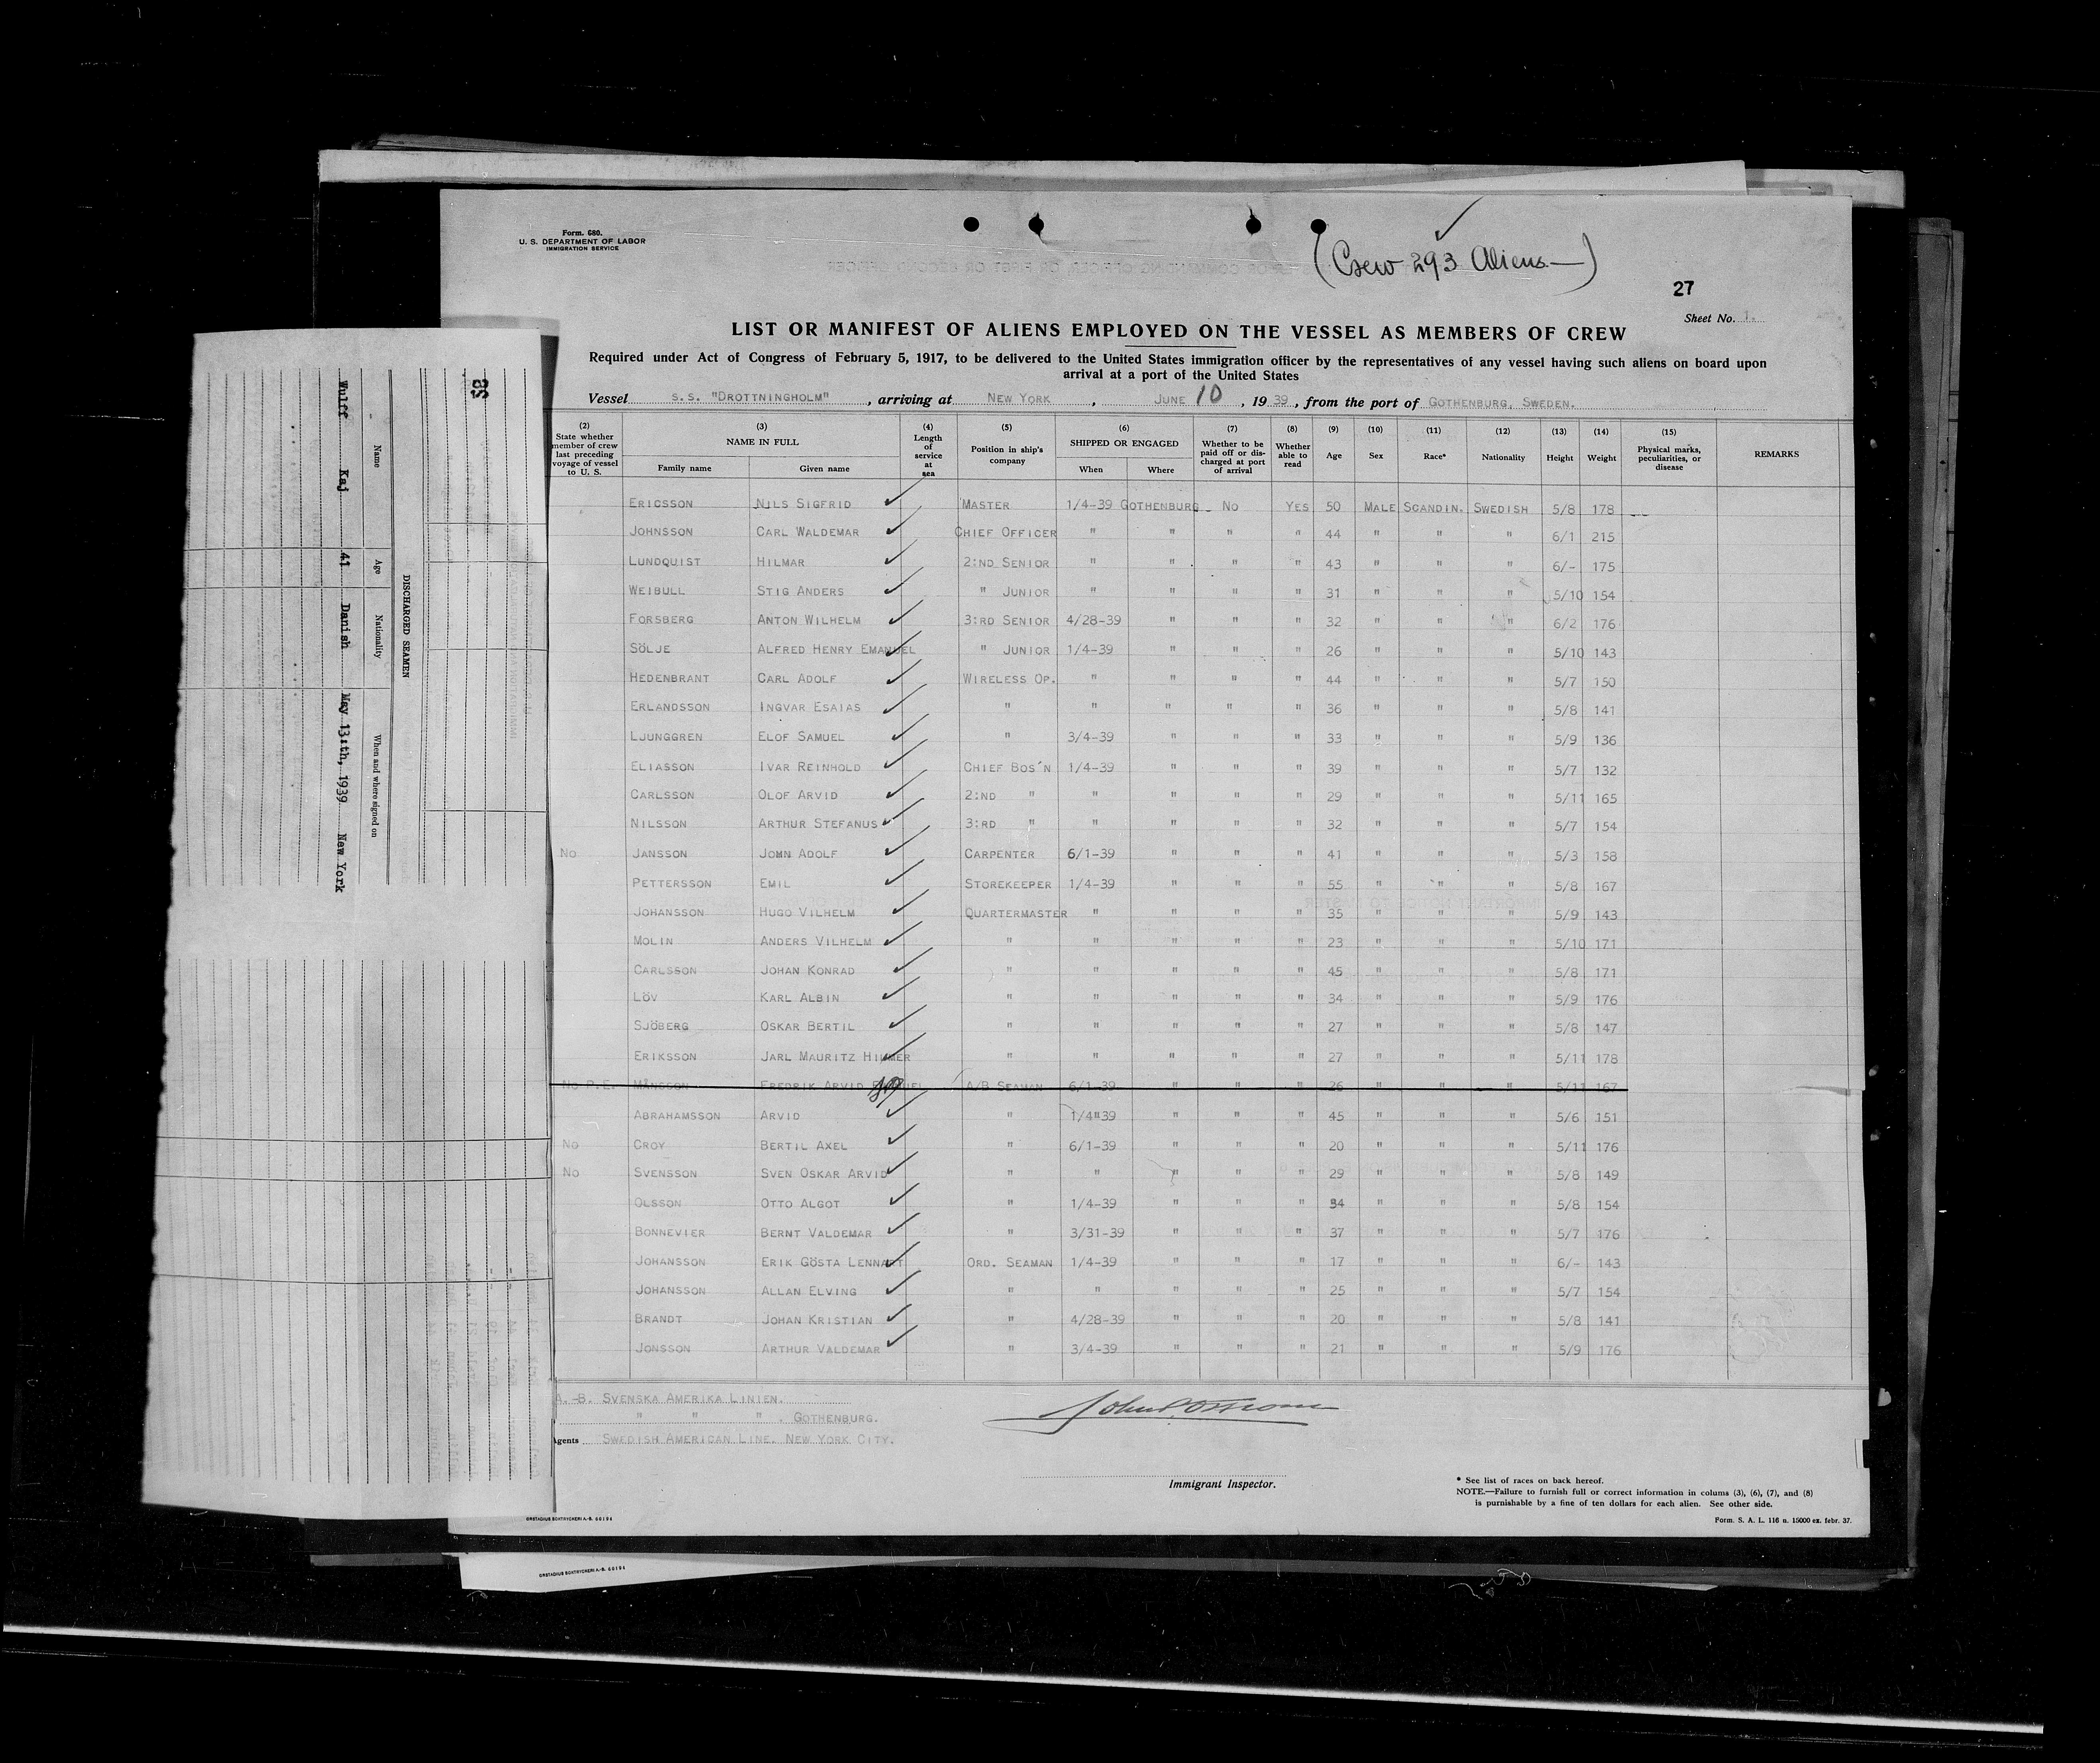 Form. 680.
U. S. DEPARTMENT OF LABOR
IMMIGRATION SERVICE
(Crew 293 Aliens—)
27
Sheet No. 1.
LIST OR MANIFEST OF ALIENS EMPLOYED ON THE VESSEL AS MEMBERS OF CREW
Required under Act of Congress of February 5, 1917, to be delivered to the United States immigration officer by the representatives of any vessel having such aliens on board upon
arrival at a port of the United States
Vessel S.S. "DROTTNINGHOLM" , arriving at NEW YORK , JUNE 10 , 1939 , from the port of GOTHENBURG, SWEDEN.
(2) State whether member of crew last preceding voyage of vessel to U. S.
(3) NAME IN FULL Family name Given name
(4) Length of service at sea
(5) Position in ship's company
(6) SHIPPED OR ENGAGED When Where
(7) Whether to be paid off or discharged at port of arrival
(8) Whether able to read
(9) Age
(10) Sex
(11) Race*
(12) Nationality
(13) Height
(14) Weight
(15) Physical marks, peculiarities, or disease
REMARKS
ERICSSON NILS SIGFRID MASTER 1/4-39 GOTHENBURG NO YES 50 MALE SCANDIN. SWEDISH 5/8 178
JOHNSSON CARL WALDEMAR CHIEF OFFICER " " " " 44 " " " 6/1 215
LUNDQUIST HILMAR 2:ND SENIOR " " " " 43 " " " 6/- 175
WEIBULL STIG ANDERS " JUNIOR " " " " 31 " " " 5/10 154
FORSBERG ANTON WILHELM 3:RD SENIOR 4/28-39 " " " 32 " " " 6/2 176
SÖLJE ALFRED HENRY EMANUEL " JUNIOR 1/4-39 " " " 26 " " " 5/10 143
HEDENBRANT CARL ADOLF WIRELESS OP. " " " " 44 " " " 5/7 150
ERLANDSSON INGVAR ESAIAS " " " " " 36 " " " 5/8 141
LJUNGGREN ELOF SAMUEL " 3/4-39 " " " 33 " " " 5/9 136
ELIASSON IVAR REINHOLD CHIEF BOS'N 1/4-39 " " " 39 " " " 5/7 132
CARLSSON OLOF ARVID 2:ND " " " " " 29 " " " 5/11 165
NILSSON ARTHUR STEFANUS 3:RD " " " " " 32 " " " 5/7 154
NO JANSSON JOHN ADOLF CARPENTER 6/1-39 " " " 41 " " " 5/3 158
PETTERSSON EMIL STOREKEEPER 1/4-39 " " " 55 " " " 5/8 167
JOHANSSON HUGO VILHELM QUARTERMASTER " " " " 35 " " " 5/9 143
MOLIN ANDERS VILHELM " " " " " 23 " " " 5/10 171
CARLSSON JOHAN KONRAD " " " " " 45 " " " 5/8 171
LÖV KARL ALBIN " " " " " 34 " " " 5/9 176
SJÖBERG OSKAR BERTIL " " " " " 27 " " " 5/8 147
ERIKSSON JARL MAURITZ HILMER " " " " " 27 " " " 5/11 178
NO P.E. MÅNSSON FREDRIK ARVID A/B SEAMAN 6/1-39 " " " 26 " " " 5/11 167
ABRAHAMSSON ARVID " 1/4"39 " " " 45 " " " 5/6 151
NO CROY BERTIL AXEL " 6/1-39 " " " 20 " " " 5/11 176
NO SVENSSON SVEN OSKAR ARVID " " " " " 29 " " " 5/8 149
OLSSON OTTO ALGOT " 1/4-39 " " " 34 " " " 5/8 154
BONNEVIER BERNT VALDEMAR " 3/31-39 " " " 37 " " " 5/7 176
JOHANSSON ERIK GÖSTA LENNART ORD. SEAMAN 1/4-39 " " " 17 " " " 6/- 143
JOHANSSON ALLAN ELVING " " " " " 25 " " " 5/7 154
BRANDT JOHAN KRISTIAN " 4/28-39 " " " 20 " " " 5/8 141
JONSSON ARTHUR VALDEMAR " 3/4-39 " " " 21 " " " 5/9 176
A.-B. SVENSKA AMERIKA LINIEN.
" " " , GOTHENBURG.
Agents SWEDISH AMERICAN LINE. NEW YORK CITY.
Immigrant Inspector.
* See list of races on back hereof.
NOTE.—Failure to furnish full or correct information in colums (3), (6), (7), and (8)
is punishable by a fine of ten dollars for each alien. See other side.
Form. S. A. L. 116 n. 15000 ex. febr. 37.
ORSTADIUS BOKTRYCKERI A.-B. 66194
ORSTADIUS BOKTRYCKERI A.-B. 66194
DISCHARGED SEAMEN
Name Age Nationality When and where signed on
Wulff Kaj 41 Danish May 13:th, 1939 New York